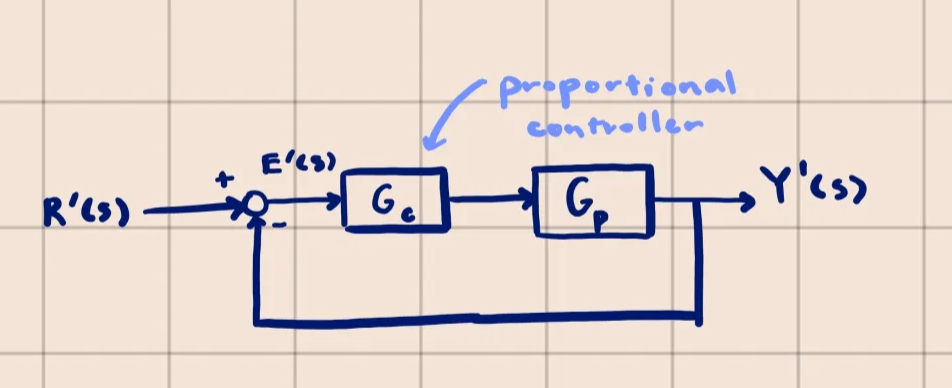 proportional
controller
E'(s)
+
R'(s)
Gc
Gp
Y'(s)
-